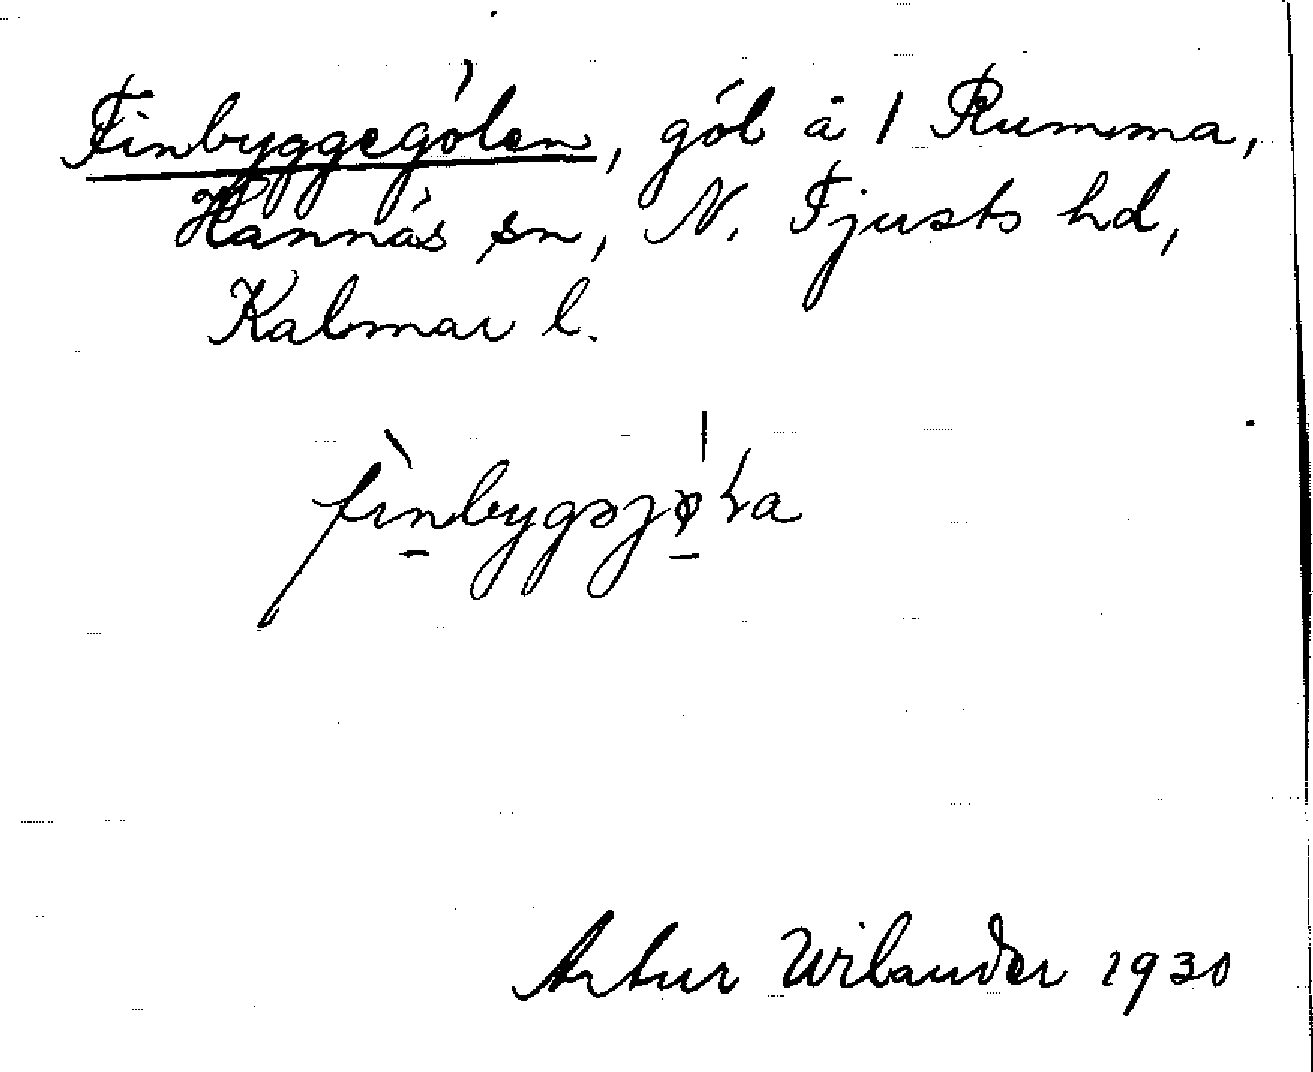 Finbyggególen, gól å 1 Rumma,
Hannäs sn, N. Tjusts hd,
Kalmar l.
Artur Wilander 1930